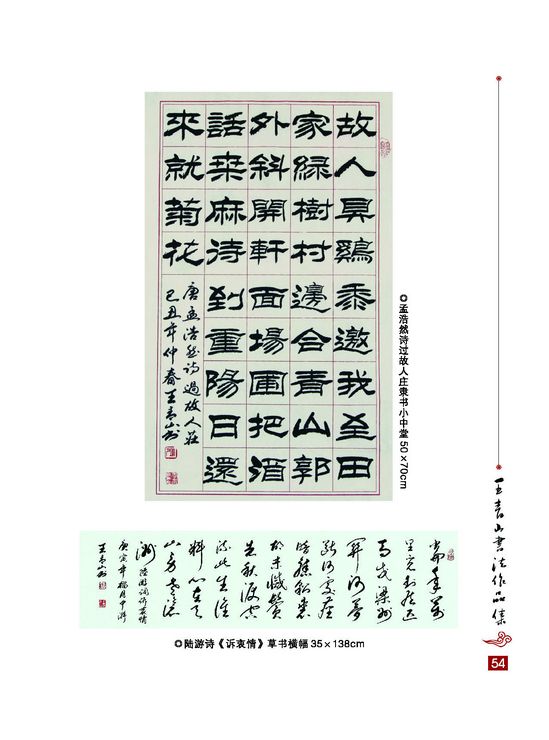 故人具鷄黍邀我至田
家綠樹村邊合青山郭
外斜開軒面場圃把酒
話桑麻待到重陽日還
來就菊花
唐孟浩然詩過故人莊
己丑年仲春王青山書
◎孟浩然诗过故人庄隶书小中堂 50×70cm
當年萬
里覓封侯匹
馬戍梁州
關河夢
斷何處塵
暗舊貂裘
胡未滅鬢
先秋淚空
流此生誰
料心在天
山身老滄
洲 陸游詞訴衷情
庚寅年
王青山書
◎陆游诗《诉衷情》草书横幅 35×138cm
王青山書法作品集
54